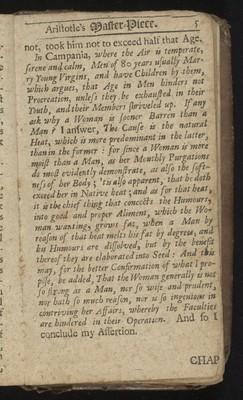 Aristotle's Master-Piece. 5
not, took him not to exceed half that Age.
In Campania, where the Air is temperate,
serene and calm, Men of 80 years usually Mar-
ry Young Virgins, and have Children by them,
which argues, that Age in Men hinders not
Procreation, unless they be exhausted in their
Youth, and their Members shriveled up. If any
ask why a Woman is sooner Barren than a
Man? I answer, The Cause is the natural
Heat, which is more predominant in the latter,
than in the former: for since a Woman is more
moist than a Man, as her Monthly Purgations
do most evidently demonstrate, as also the soft-
ness of her Body; 'tis also apparent, that he doth
exceed her in Native heat; and as for that heat,
it is the chief thing that concocts the Humours,
into good and proper Aliment, which the Wo-
man wanting grows fat, when a Man by
reason of that heat melts his fat by degrees, and
his Humours are dissolved, but by the benefit
thereof they are elaborated into Seed: And this
may, for the better Confirmation of what I pro-
pose, be added, That the Woman generally is not
so strong as a Man, nor so wise and prudent,
nor hath so much reason, nor is so ingenious in
contriving her Affairs, whereby the Faculties
are hindered in their Operation. And so I
conclude my Assertion.
CHAP